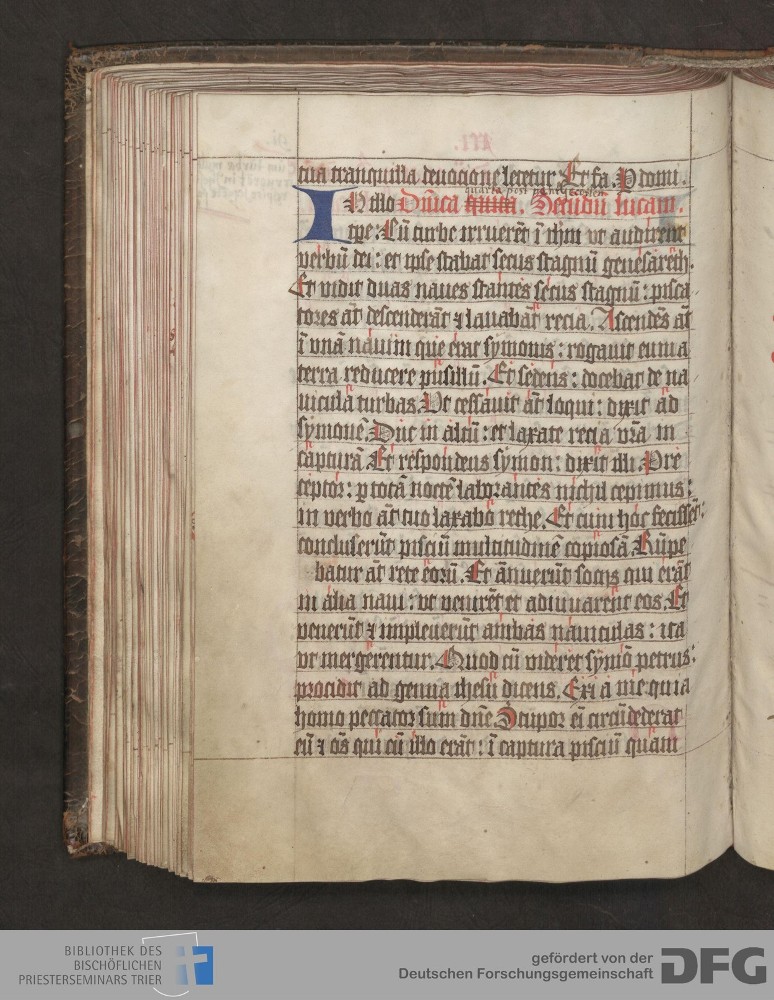 tua tranquilla deuocione letetur. Et fa. P domi.
quarta post penthecosten
N illo Dn̄ica quīta. Secūdū lucam.
I
tp̄e: Cū turbe irruerēt ī ihm̄ vt audirent
verbū dei: et ipse stabat secus stagnū genesareth.
Et vidit duas naues stantes secus stagnū: pisca
tores aūt descenderāt ⁊ lauabāt recia. Ascendēs aūt
ī vnā nauim que erat symonis: rogauit eum a
terra reducere pusillū. Et sedens: docebat de na
uicula turbas. Vt cessauit aūt loqui: dixit ad
symonē. Duc in altū: et laxate recia vr̄a in
capturā. Et respondens symon: dixit illi. Pre
ceptor: ꝑ totā noctē laborantes nichil cepimus:
in verbo aūt tuo laxabo rethe. Et cum hoc fecissēt:
concluserūt pisciū multitudinē copiosā. Rūpe
batur aūt rete eorū. Et ānuerūt socijs qui erāt
in alia naui: vt venirēt et adiuuarent eos. Et
venerūt ⁊ impleuerūt ambas nauiculas: ita
vt mergerentur. Quod cū videret symō petrus:
procidit ad genua ihesu dicens. Exi a me quia
homo peccator sum dn̄e. Stupor eī circūdederat
eū ⁊ oēs qui cū illo erāt: ī captura pisciū quam
BIBLIOTHEK DES
BISCHÖFLICHEN
PRIESTERSEMINARS TRIER
gefördert von der
Deutschen Forschungsgemeinschaft
DFG